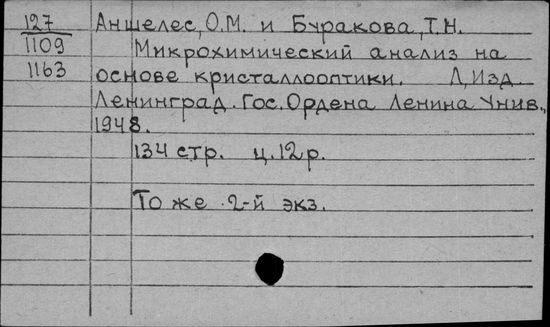 127 Аншелес, О.М. и Буракова, Т.Н.
1109 Микрохимический анализ на
1163 основе кристаллооптики. Л, Изд.
Ленинград. Гос. Ордена Ленина Унив.,
1948.
134 стр. ц. 12 р.
То же 2-й экз.